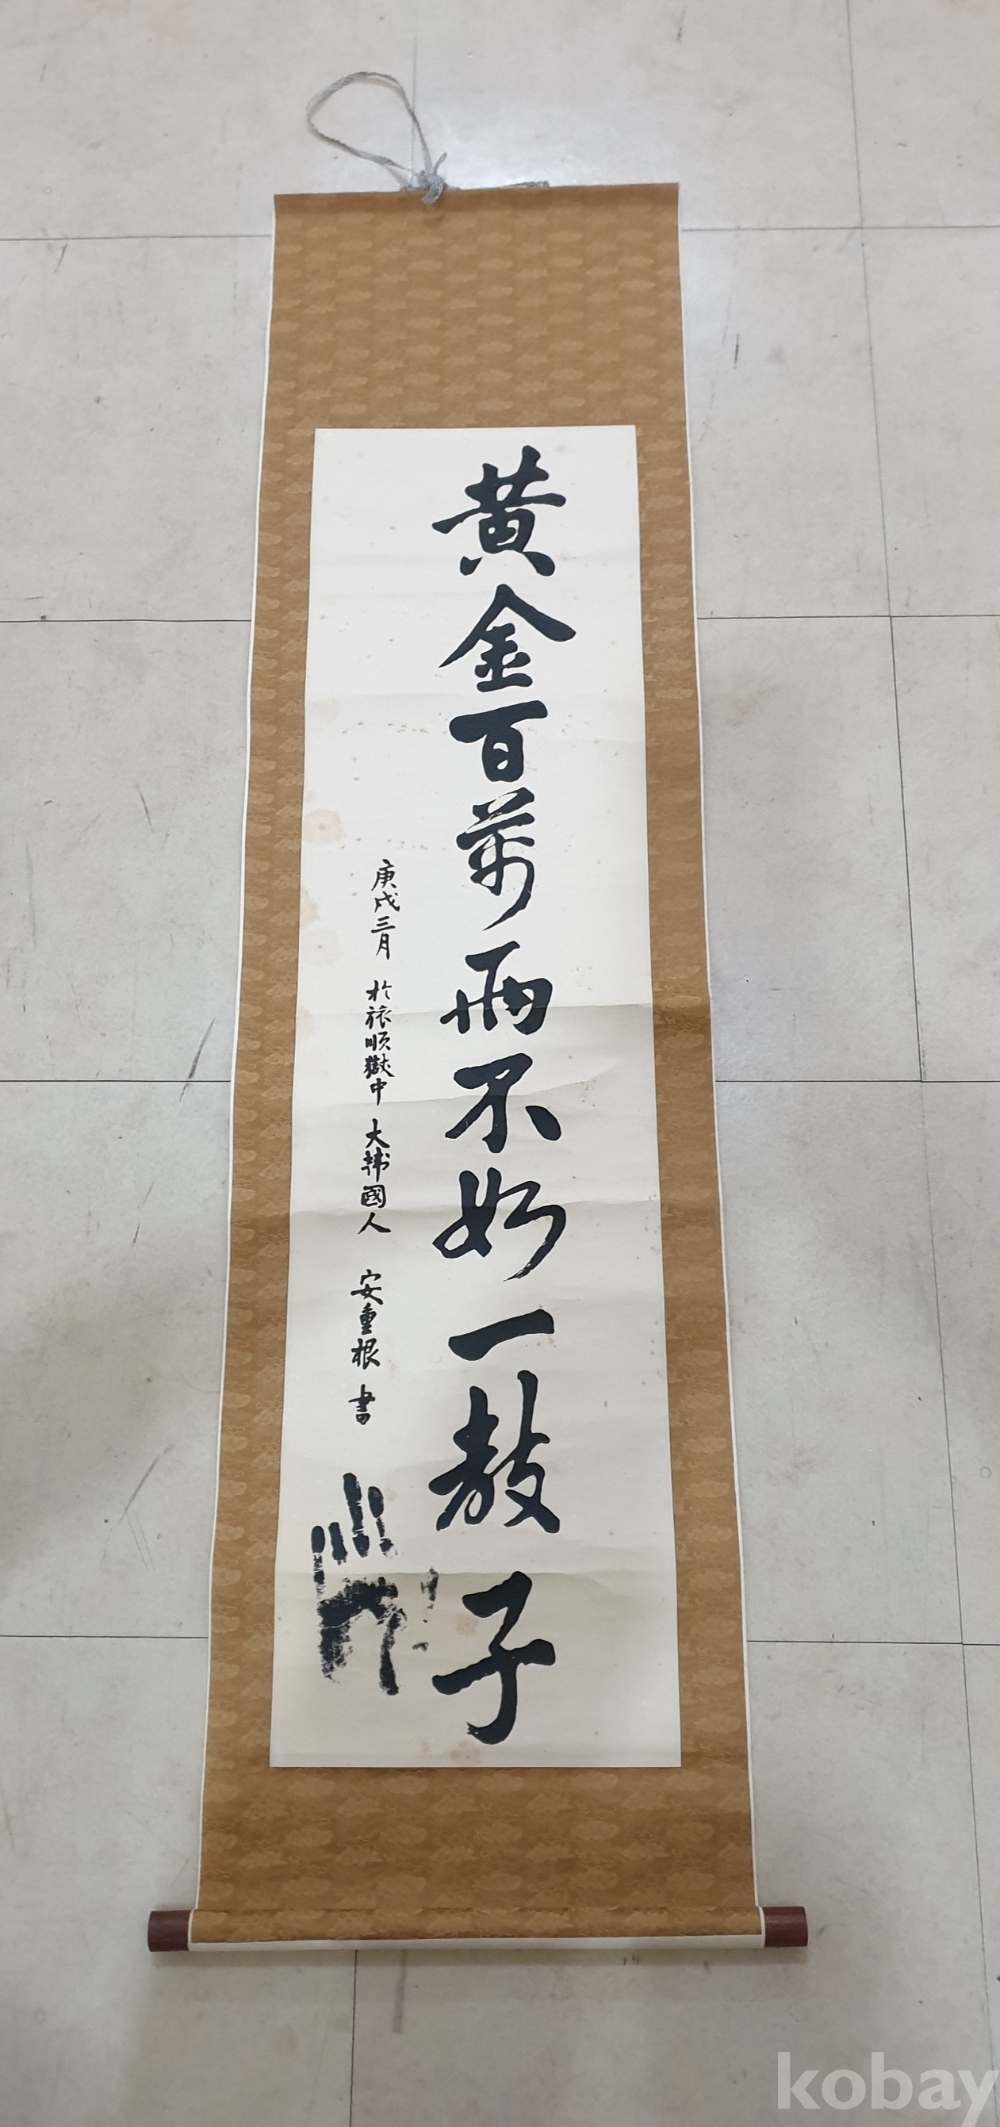 黄金百萬兩不如一敎子
庚戌三月 於旅順獄中 大韓國人 安重根 書
kobay